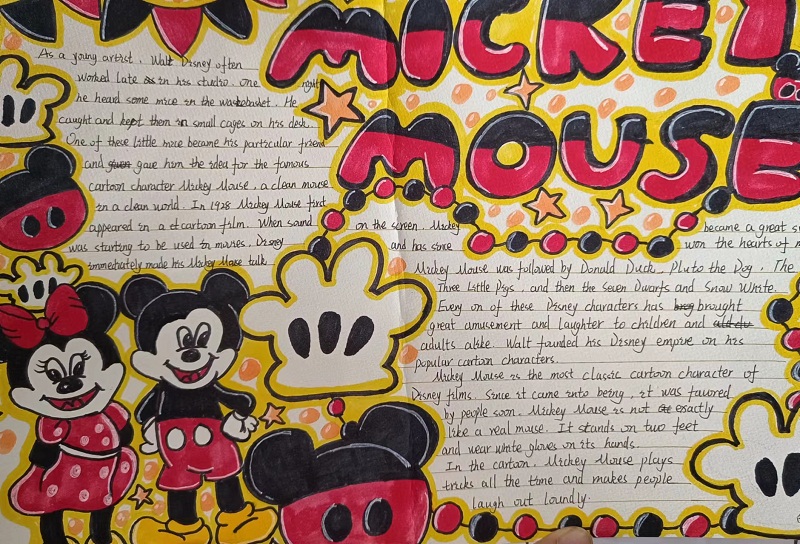 MICKEY
MOUSE
As a young artist, Walt Disney often
worked late as in his studio. One night
he heard some mice in the wastebasket. He
caught and kept them in small cages on his desk.
One of these little mice became his particular friend
and given gave him the idea for the famous
cartoon character Mickey Mouse, a clean mouse
in a clean world. In 1928 Mickey Mouse first
appeared in a cartoon film. When sound
was starting to be used in movies, Disney
immediately made his Mickey Mouse talk
on the screen. Mickey became a great
and has since won the hearts of
Mickey Mouse was followed by Donald Duck, Pluto the Dog, The
Three Little Pigs, and then the Seven Dwarfs and Snow White.
Every on of these Disney characters has brought
great amusement and laughter to children and
adults alike. Walt founded his Disney empire on his
popular cartoon characters.
Mickey Mouse is the most classic cartoon character of
Disney films. Since it came into being, it was favored
by people soon. Mickey Mouse is not exactly
like a real mouse. It stands on two feet
and wear white gloves on its hands.
In the cartoon, Mickey Mouse plays
tricks all the time and makes people
laugh out loundly.